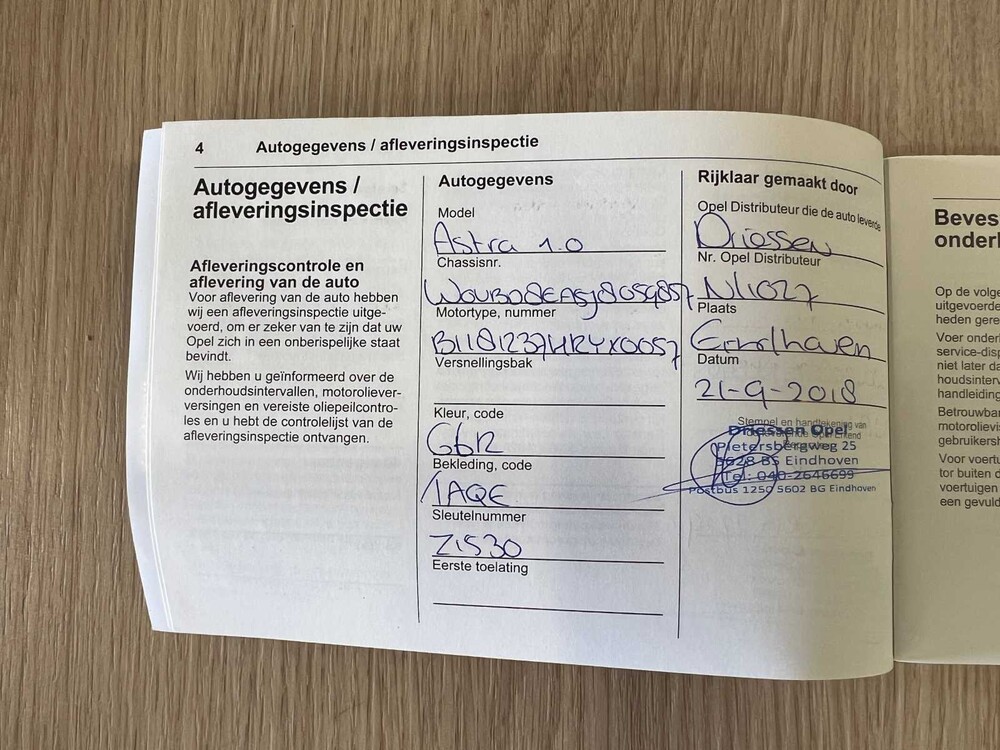 4 Autogegevens / afleveringsinspectie
Autogegevens /
afleveringsinspectie
Afleveringscontrole en
aflevering van de auto
Voor aflevering van de auto hebben
wij een afleveringsinspectie uitge-
voerd, om er zeker van te zijn dat uw
Opel zich in een onberispelijke staat
bevindt.
Wij hebben u geïnformeerd over de
onderhoudsintervallen, motoroliever-
versingen en vereiste oliepeilcontro-
les en u hebt de controlelijst van de
afleveringsinspectie ontvangen.
Autogegevens
Model
Astra 1.0
Chassisnr.
W0VBD8EA5J8059857
Motortype, nummer
Versnellingsbak
Kleur, code
G6R
Bekleding, code
1AQE
Sleutelnummer
Z1530
Eerste toelating
Rijklaar gemaakt door
Opel Distributeur die de auto leverde
Driessen
Nr. Opel Distributeur
NL1027
Plaats
Eindhoven
Datum
21-9-2018
Stempel en handtekening van
Driessen Opel
Pietersbergweg 25
5628 BS Eindhoven
Tel: 040-2646699
Postbus 1250 5602 BG Eindhoven
Beves
onderh
Op de volge
uitgevoerde
heden gere
Voer onderh
service-disp
niet later da
houdsinterv
handleiding
Betrouwbar
motorolievis
gebruikersh
Voor voertu
tor buiten d
voertuigen
een gevuld